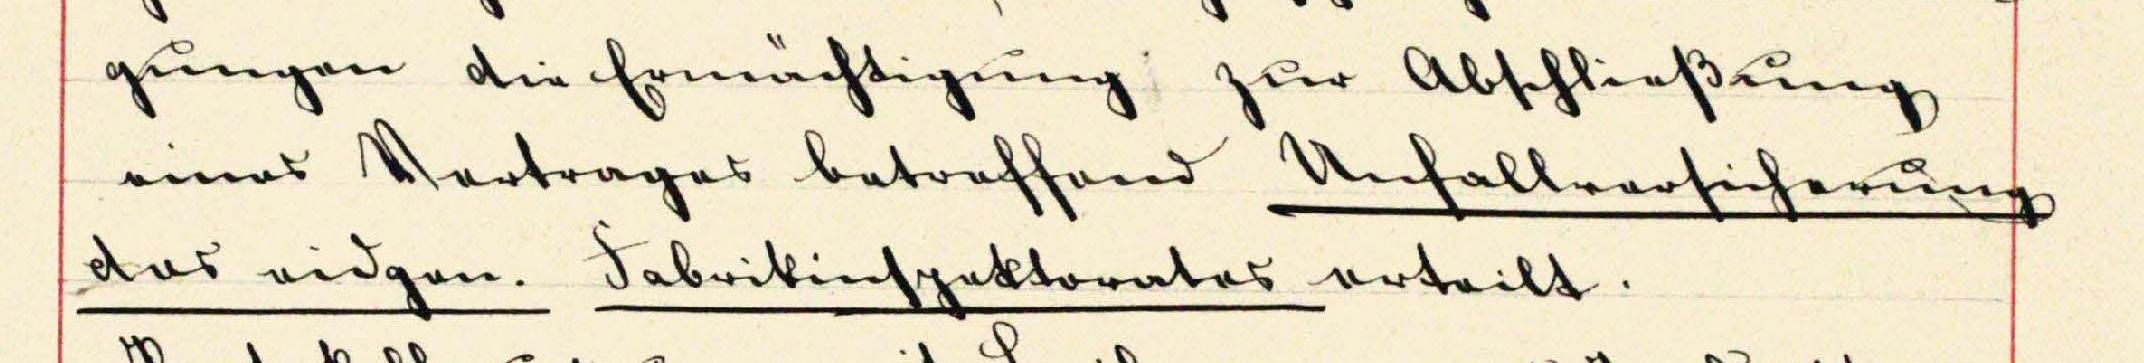 gungen die Ermächtigung zur Abschließung
eines Vertrages betreffend Unfallversicherung
des eidgen. Fabrikinspektorates erteilt.